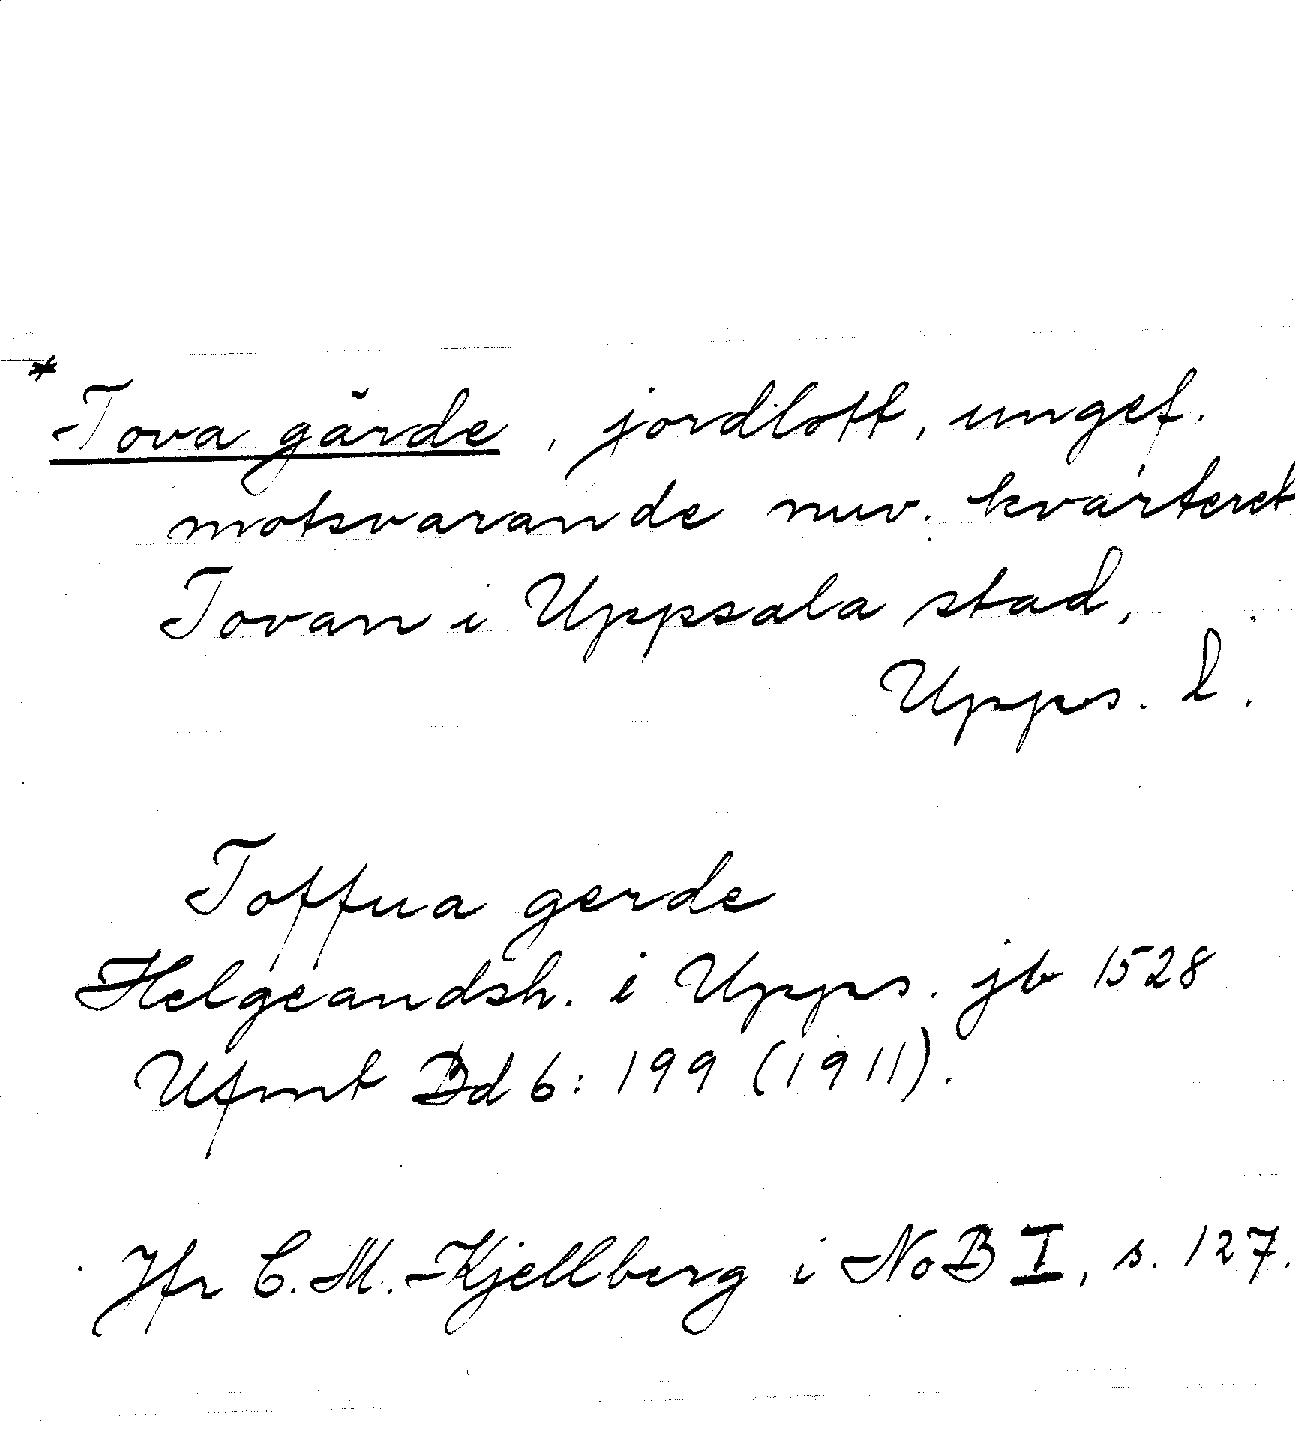 * Tova gärde, jordlott, ungef.
motsvarande nuv. kvarteret
Tovan i Uppsala stad,
Upps. l.
Toffua gerde
Helgeandsh. i Upps. jb 1528
Ufmt Bd 6: 199 (1911).
Jfr C. M. Kjellberg i NoB I, s. 127.